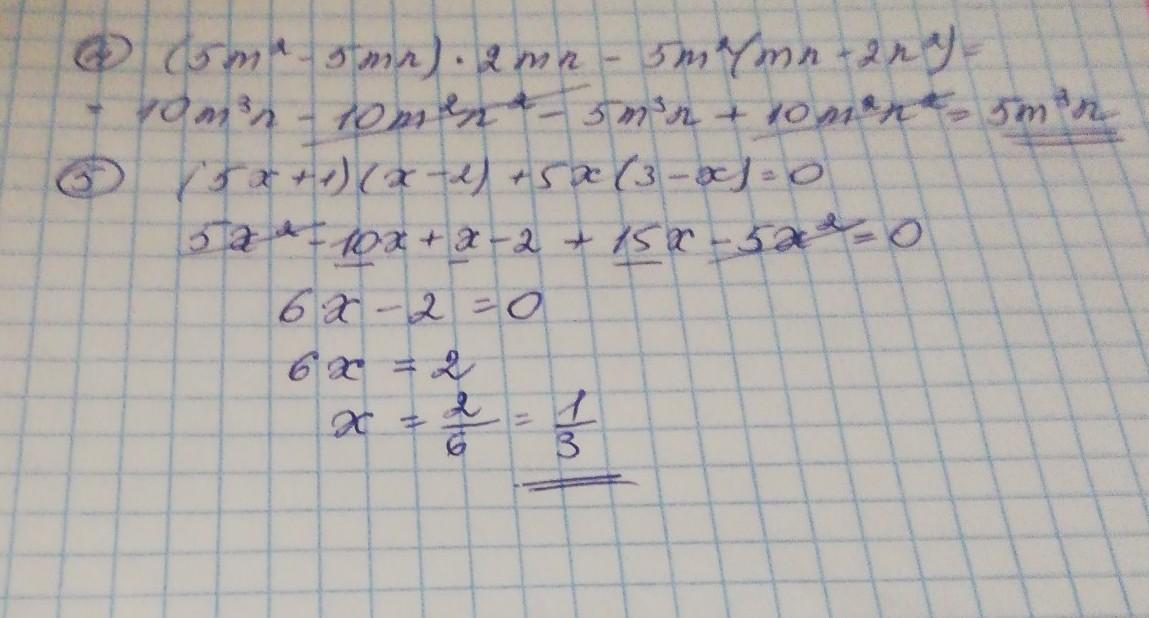 ④ (5m² - 5mn) · 2mn - 5m²(mn - 2n²) =
= 10m³n - 10m²n² - 5m³n + 10m²n² = 5m³n
⑤ (5x+1)(x-2) + 5x(3-x) = 0
5x² - 10x + x - 2 + 15x - 5x² = 0
6x - 2 = 0
6x = 2
x = 2/6 = 1/3